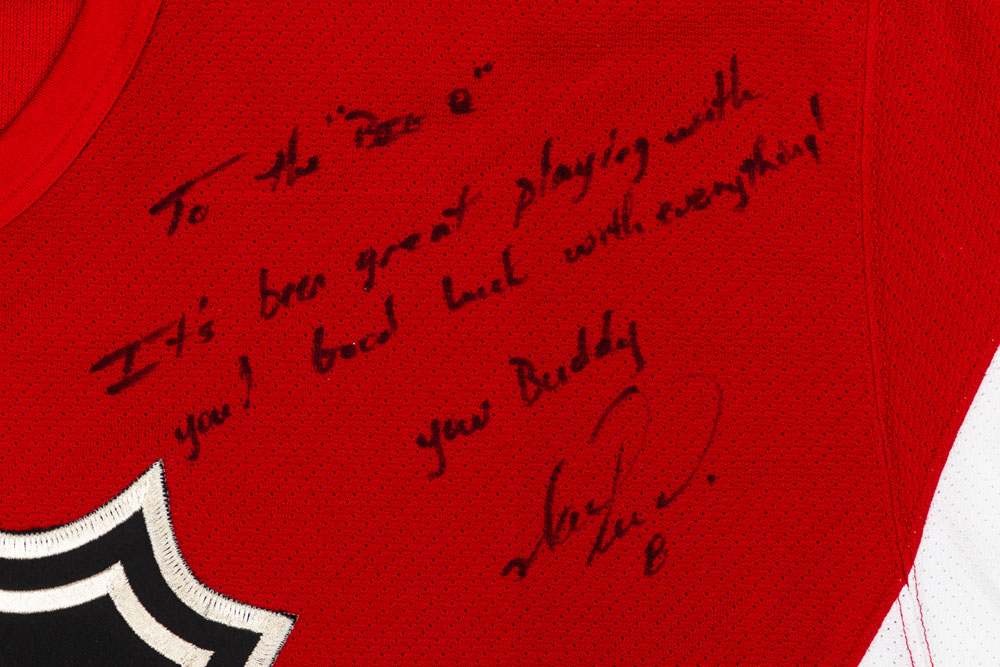 To the "Big E"
It's been great playing with
you! Good luck with everything!
your Buddy
8